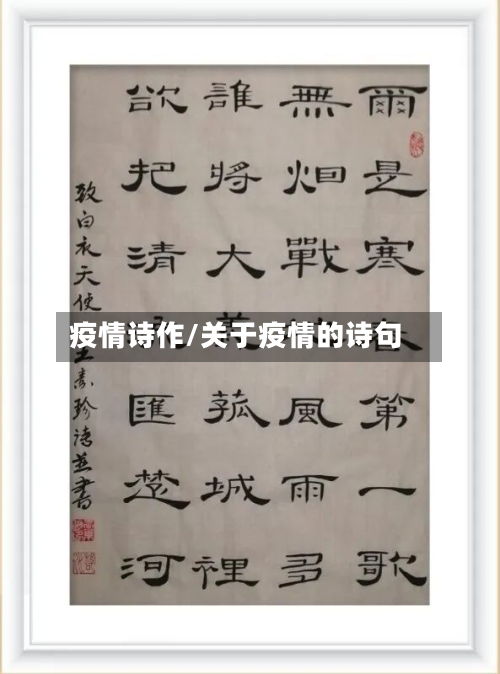 爾是寒春第一歌
無烟戰風雨多
誰將大義孤城裡
欲把清匯楚河
致白衣天使
王素珍诗並書
疫情诗作/关于疫情的诗句